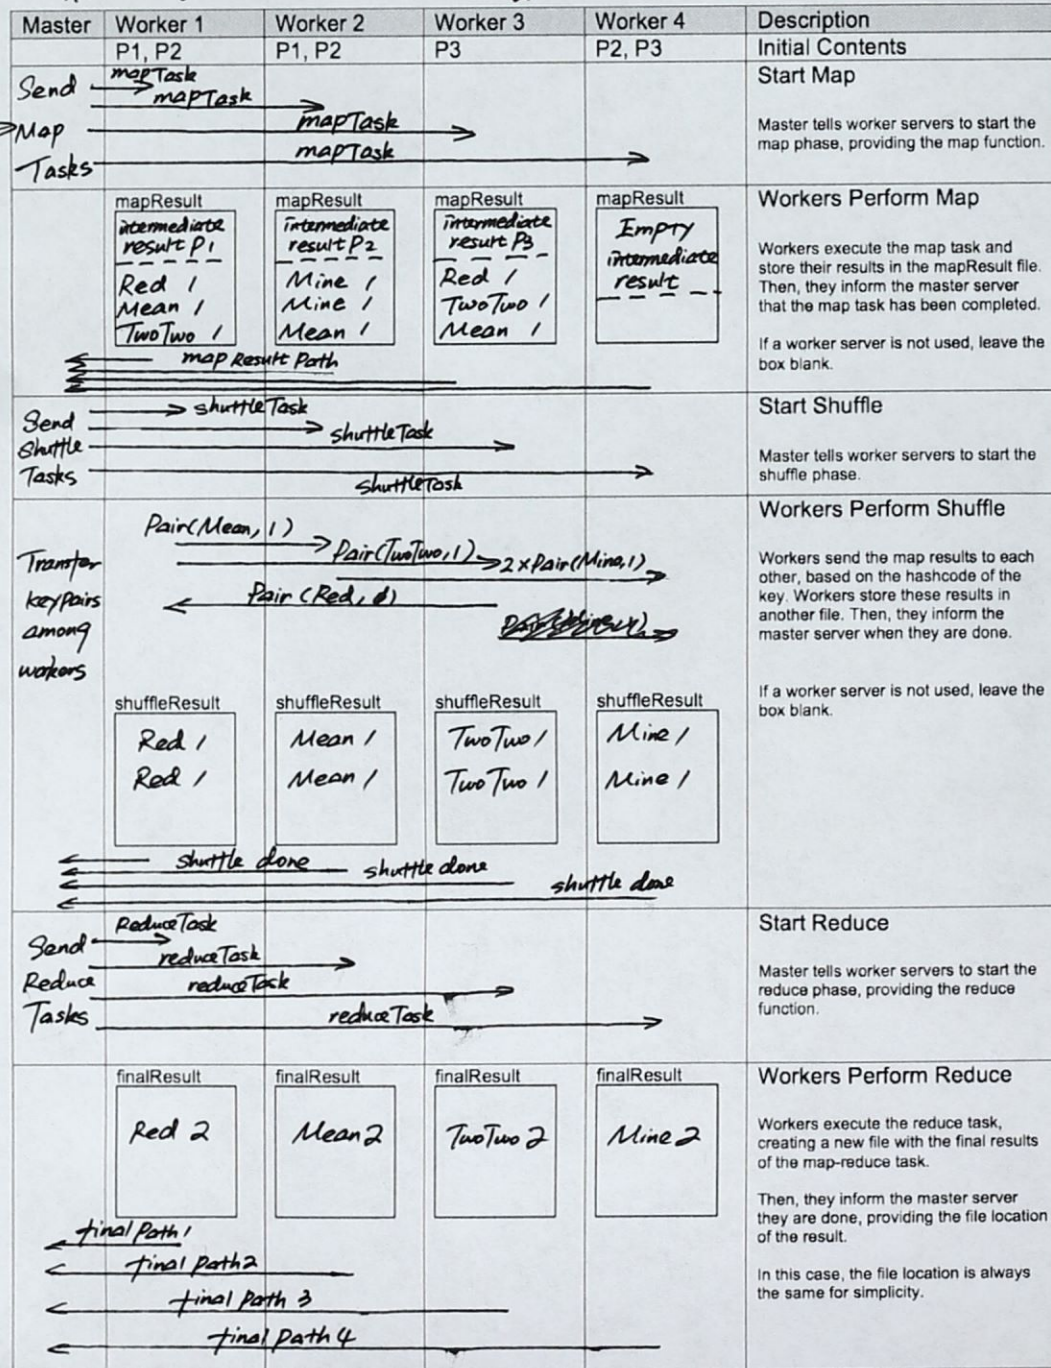 Master Worker 1 Worker 2 Worker 3 Worker 4 Description
P1, P2 P1, P2 P3 P2, P3 Initial Contents
Start Map
Send
Map
Tasks
mapTask
mapTask
mapTask
mapTask
Master tells worker servers to start the
map phase, providing the map function.
mapResult
intermediate
result P1
Red 1
Mean 1
TwoTwo 1
mapResult
intermediate
result P2
Mine 1
Mine 1
Mean 1
mapResult
intermediate
result P3
Red 1
TwoTwo 1
Mean 1
mapResult
Empty
intermediate
result
map Result Path
Workers Perform Map
Workers execute the map task and
store their results in the mapResult file.
Then, they inform the master server
that the map task has been completed.
If a worker server is not used, leave the
box blank.
Send
Shuttle
Tasks
shuttleTask
shuttleTask
shuttleTask
Start Shuffle
Master tells worker servers to start the
shuffle phase.
Transfer
keypairs
among
workers
Pair(Mean, 1)
Pair(TwoTwo, 1)
2xPair(Mine, 1)
Pair (Red, 1)
shuffleResult
Red 1
Red 1
shuffleResult
Mean 1
Mean 1
shuffleResult
TwoTwo 1
TwoTwo 1
shuffleResult
Mine 1
Mine 1
shuttle done
shuttle done
shuttle done
Workers Perform Shuffle
Workers send the map results to each
other, based on the hashcode of the
key. Workers store these results in
another file. Then, they inform the
master server when they are done.
If a worker server is not used, leave the
box blank.
Send
Reduce
Tasks
ReduceTask
reduceTask
reduceTask
reduceTask
Start Reduce
Master tells worker servers to start the
reduce phase, providing the reduce
function.
finalResult
Red 2
finalResult
Mean 2
finalResult
TwoTwo 2
finalResult
Mine 2
final Path 1
final Path 2
final Path 3
final Path 4
Workers Perform Reduce
Workers execute the reduce task,
creating a new file with the final results
of the map-reduce task.
Then, they inform the master server
they are done, providing the file location
of the result.
In this case, the file location is always
the same for simplicity.